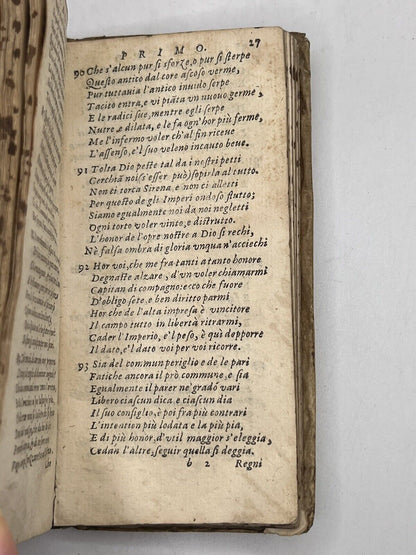 PRIMO. 27
90 Che s'alcun pur si sforze, o pur si sterpe
Questo antico dal core ascoso verme,
Pur tuttauia l'antico inuido serpe
Tacito entra, e vi piãta vn nuouo germe,
E le radici sue, mentre egli serpe
Nutre e dilata, e le fa ogn'hor più ferme,
Me l'infermo voler ch'al fin riceue
L'assenso, e'l suo veleno incauto beue.
91 Tolta Dio peste tal da i nostri petti
Cerchiã noi s'esser può) sopirla al tutto.
Non ei torca Sirena, e non ci alletti
Per questo de gli Imperi ondoso flutto;
Siamo egualmente noi da noi negletti
Ogni torto voler vinto, e distrutto.
L'honor de l'opre nostre a Dio si rechi,
Nè falsa ombra di gloria vnqua n'acciechi
92 Hor voi, che me fra tanti a tanto honore
Degnaste alzare, d'vn voler chiamarmi
Capitan di compagno: ecco che fuore
D'obligo sete, e ben diritto parmi
Hor che de l'alta impresa è vincitore
Il campo tutto in libertà ritrarmi,
Cader l'Imperio, e'l peso, è quì depporre
Il dato, e'l dato voi per voi ricorre.
93 Sia del commun periglio e de le pari
Fatiche ancora il prò commune, e sia
Egualmente il parer ne'gradi vari
Libero ciascun dica, e ciascun dia
Il suo consiglio, è poi fra più contrari
L'intention più lodata e la più pia,
E di più honor, d'vtil maggior s'eleggia,
Cedan l'altre, seguir quella si deggia.
b 2 Regni